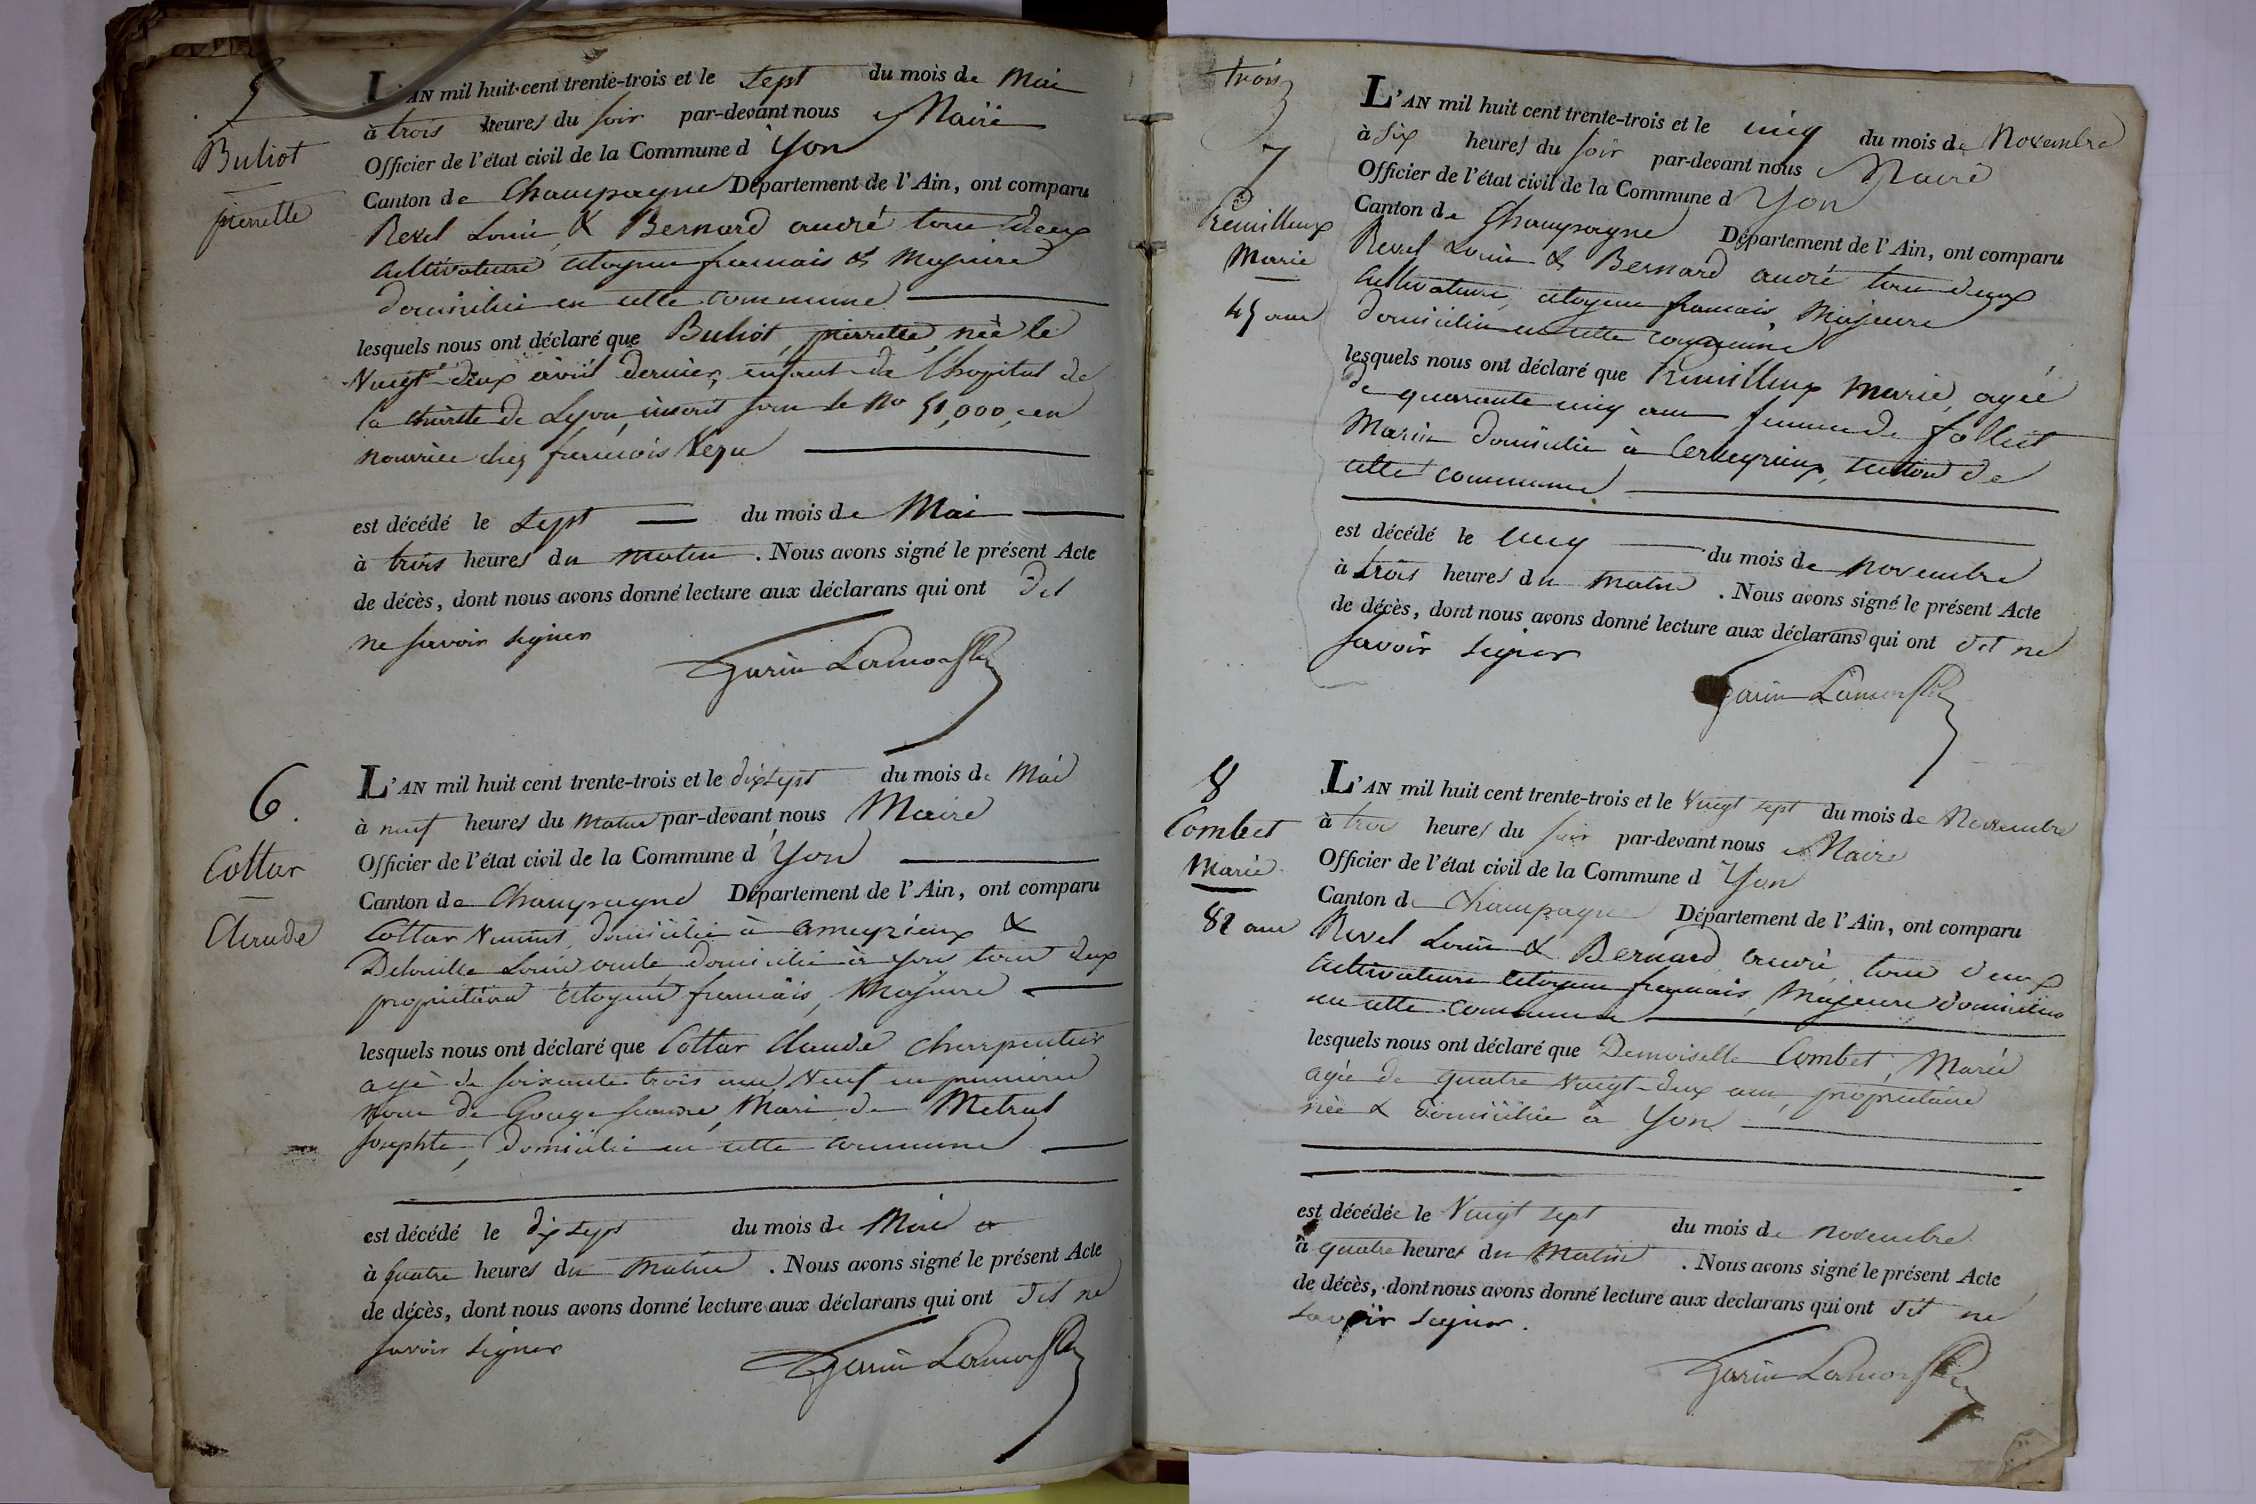 5
Buliot
pierrette
L'AN mil huit cent trente-trois et le sept du mois de Mai
à trois heures du soir par-devant nous Maire
Officier de l'état civil de la Commune d'Yon
Canton de Champagne Département de l'Ain, ont comparu
Revel Louis & Bernard andré tous deux
cultivateurs citoyens français & Majeurs
domiciliés en cette commune
lesquels nous ont déclaré que Buliot, pierrette, née le
Vingt-deux avril dernier, enfant de l'hopital de
la charité de Lyon, inscrit sous le No 51,000, en
nourrice chez francois
est décédé le sept du mois de Mai
à trois heures du matin. Nous avons signé le présent Acte
de décès, dont nous avons donné lecture aux déclarans qui ont dit
ne savoir signer
6.
Cottar
Claude
L'AN mil huit cent trente-trois et le dix sept du mois de Mai
à neuf heures du matin par-devant nous Maire
Officier de l'état civil de la Commune d'Yon
Canton de Champagne Département de l'Ain, ont comparu
Cottar domicilié à ameyzieux &
Louis domicilié à yon tous deux
propriétaires citoyens français, Majeurs
lesquels nous ont déclaré que Cottar Claude charpentier
agé de soixante trois ans Veuf en premieres
de Gouge Mari de Metral
Josephte, domicilié en cette commune
est décédé le dix sept du mois de Mai
à quatre heures du matin. Nous avons signé le présent Acte
de décès, dont nous avons donné lecture aux déclarans qui ont dit ne
savoir signer
trois
7
Premilleux
Marie
45 ans
L'AN mil huit cent trente-trois et le cinq du mois de Novembre
à six heures du soir par-devant nous Maire
Officier de l'état civil de la Commune d'Yon
Canton de Champagne Département de l'Ain, ont comparu
Revel Louis & Bernard andré tous deux
cultivateurs, citoyens français, Majeurs
domiciliés en cette commune
lesquels nous ont déclaré que Premilleux Marie, agée
de quarante cinq ans femme de folliet
Marin domicilié à Cerveyrieux, section de
cette commune
est décédé le cinq du mois de novembre
à trois heures du matin. Nous avons signé le présent Acte
de décès, dont nous avons donné lecture aux déclarans qui ont dit ne
savoir signer
8
Combet
Marie
82 ans
L'AN mil huit cent trente-trois et le Vingt sept du mois de Novembre
à trois heures du soir par-devant nous Maire
Officier de l'état civil de la Commune d'Yon
Canton de Champagne Département de l'Ain, ont comparu
Revel Louis & Bernard andré, tous deux
cultivateurs citoyens français, Majeurs domiciliés
en cette commune
lesquels nous ont déclaré que Demoiselle Combet, Marie
agée de quatre Vingt-deux ans, propriétaire
née & domiciliée à Yon
est décédée le Vingt sept du mois de novembre
à quatre heures du Matin. Nous avons signé le présent Acte
de décès, dont nous avons donné lecture aux déclarans qui ont dit ne
savoir signer.